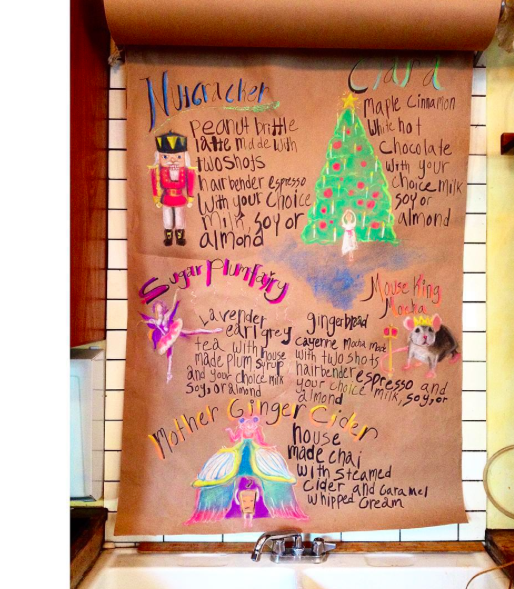 Nutcracker
peanut brittle
latte made with
two shots
hairbender espresso
with your choice
milk, soy or
almond
Clara
maple cinnamon
white hot
chocolate
with your
choice milk
soy or
almond
Sugar Plum Fairy
Lavender
earl grey
tea with house
made plum syrup
and your choice milk
soy, or almond
Mouse King
Mocha
gingerbread
cayenne mocha made
with two shots
hairbender espresso and
your choice milk, soy, or
almond
Mother Ginger Cider
house
made chai
with steamed
cider and caramel
whipped cream